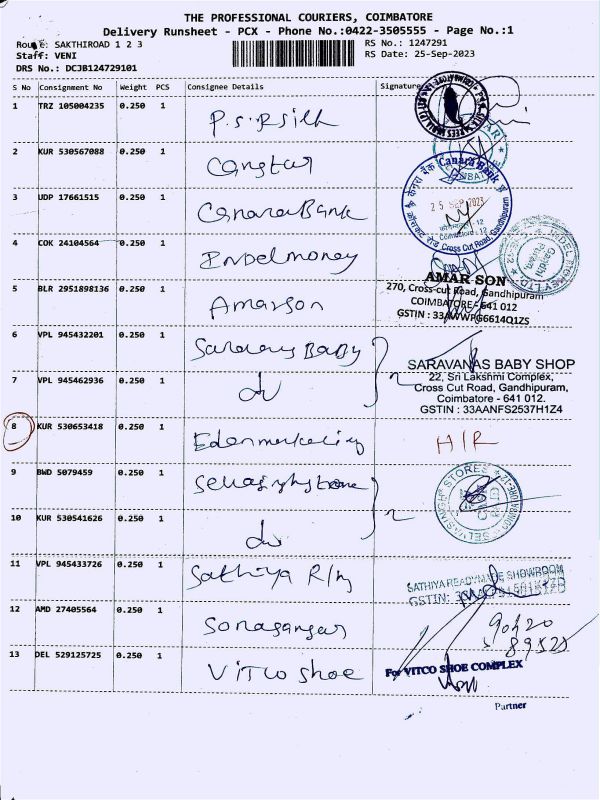 THE PROFESSIONAL COURIERS, COIMBATORE
Delivery Runsheet - PCX - Phone No.:0422-3505555 - Page No.:1
Route: SAKTHIROAD 1 2 3
RS No.: 1247291
Staff: VENI
RS Date: 25-Sep-2023
DRS No.: DCJB124729101
S No Consignment No Weight PCS Consignee Details Signature
1 TRZ 105004235 0.250 1 P.S.R silk
2 KUR 530567088 0.250 1
3 UDP 17661515 0.250 1 Canara Bank
Canara Bank
केनरा बैंक
25 SEP 2023
Coimbatore - 12
Cross Cut Road, Gandhipuram
4 COK 24104564 0.250 1 Indel money
Gandhi Puram
5 BLR 2951898136 0.250 1 Amarson
AMAR SON
270, Cross-cut Road, Gandhipuram
COIMBATORE - 641 012
GSTIN : 33AWWPG6614Q1ZS
6 VPL 945432201 0.250 1 Saravanas Baby
SARAVANAS BABY SHOP
22, Sri Lakshmi Complex,
Cross Cut Road, Gandhipuram,
Coimbatore - 641 012.
GSTIN : 33AANFS2537H1Z4
7 VPL 945462936 0.250 1 do
8 KUR 530653418 0.250 1 Eden marketing H/R
9 BWD 5079459 0.250 1
SELVASINGH STORES
COIMBATORE-12
10 KUR 530541626 0.250 1 do
11 VPL 945433726 0.250 1 Sathiya R/m
SATHIYA READYMADE SHOWROOM
GSTIN:
12 AMD 27405564 0.250 1
13 DEL 529125725 0.250 1 Vitco Shoe
For VITCO SHOE COMPLEX
Partner